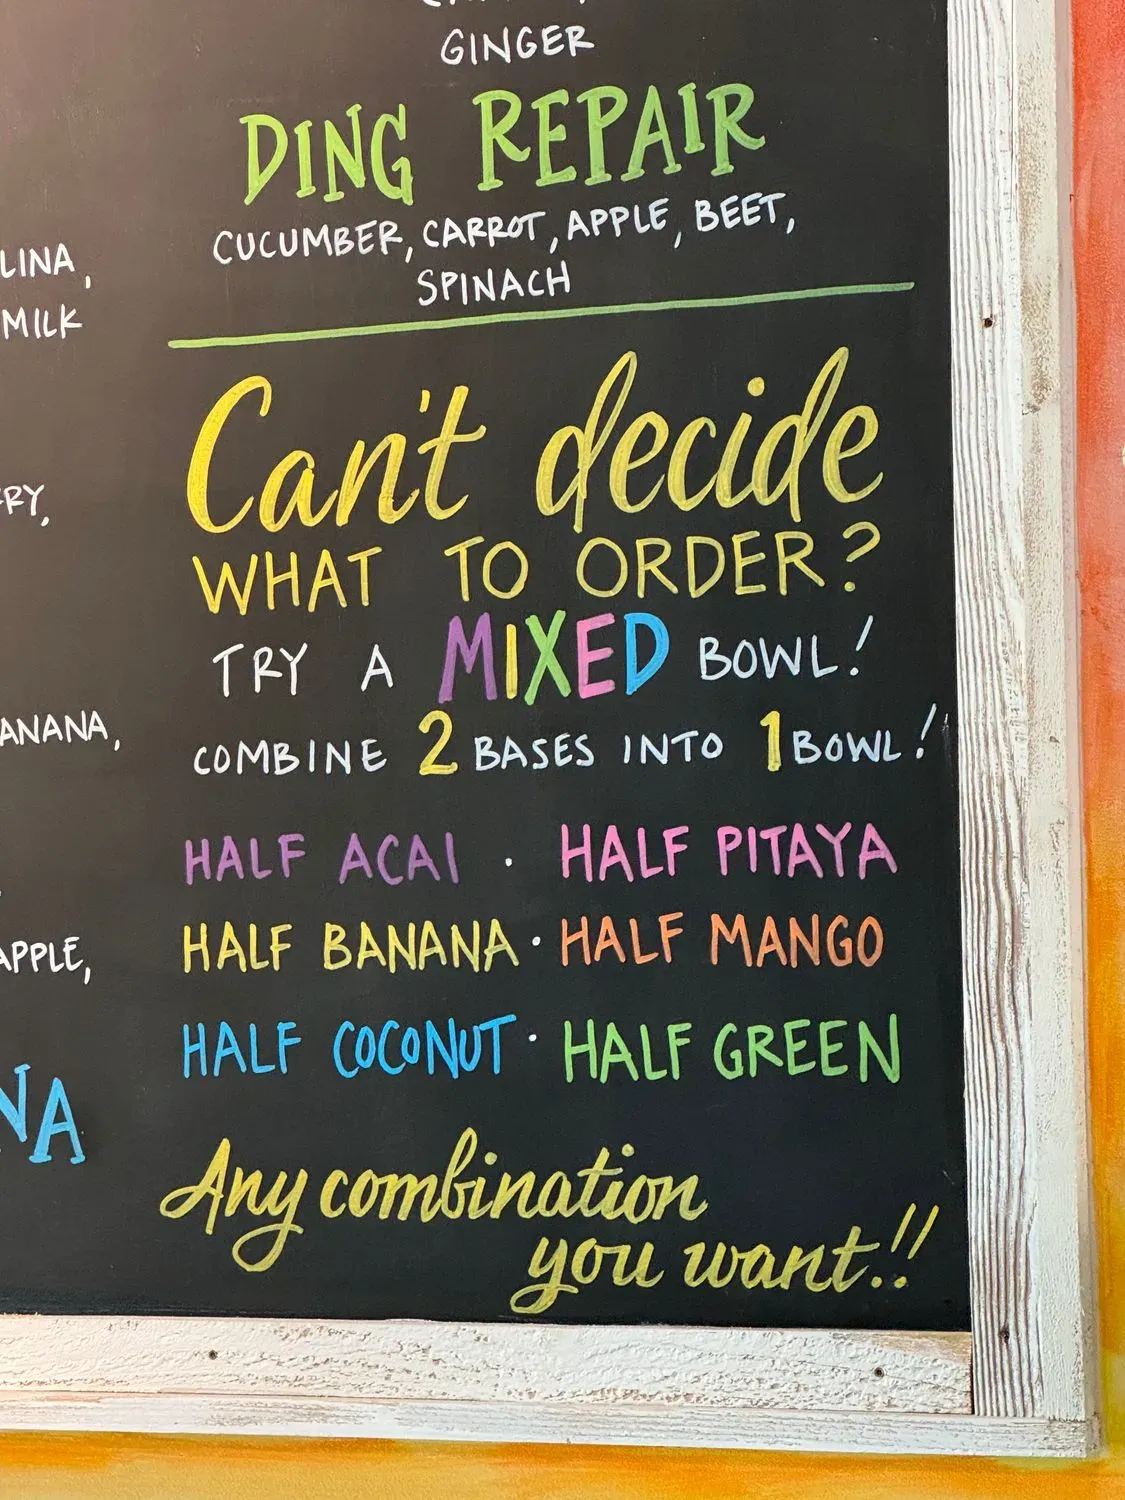 GINGER
DING REPAIR
CUCUMBER, CARROT, APPLE, BEET,
SPINACH
LINA,
MILK
RY,
ANANA,
APPLE,
NA
Can't decide
WHAT TO ORDER?
TRY A MIXED BOWL!
COMBINE 2 BASES INTO 1 BOWL!
HALF ACAI · HALF PITAYA
HALF BANANA · HALF MANGO
HALF COCONUT · HALF GREEN
Any combination
you want!!